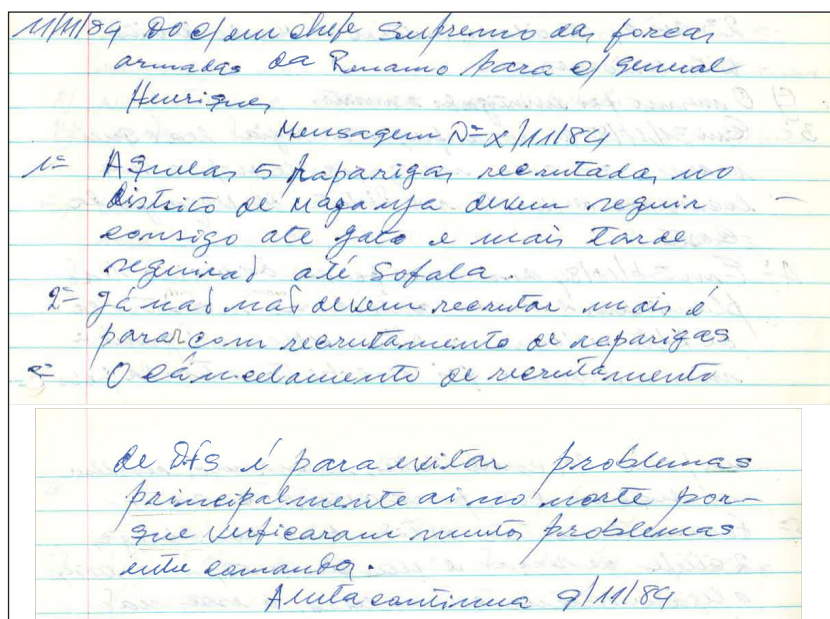 11/11/84 Do c/em chefe Supremo das forcas
armadas da Renamo para o/ general
Henriques
Mensagem Nº x/11/84
1º Aquelas 5 raparigas recrutadas no
distrito de Maganja devem seguir
consigo ate gato e mais tarde
seguirão até Sofala.
2º Já não mas devem recrutar mais é
parar com recrutamento de reparigas
3º O cancelamento de recrutamento
de Dfs é para evitar problemas
principalmente ai no norte por-
que verficaram muitos problemas
entre comandos.
A luta continua 9/11/84